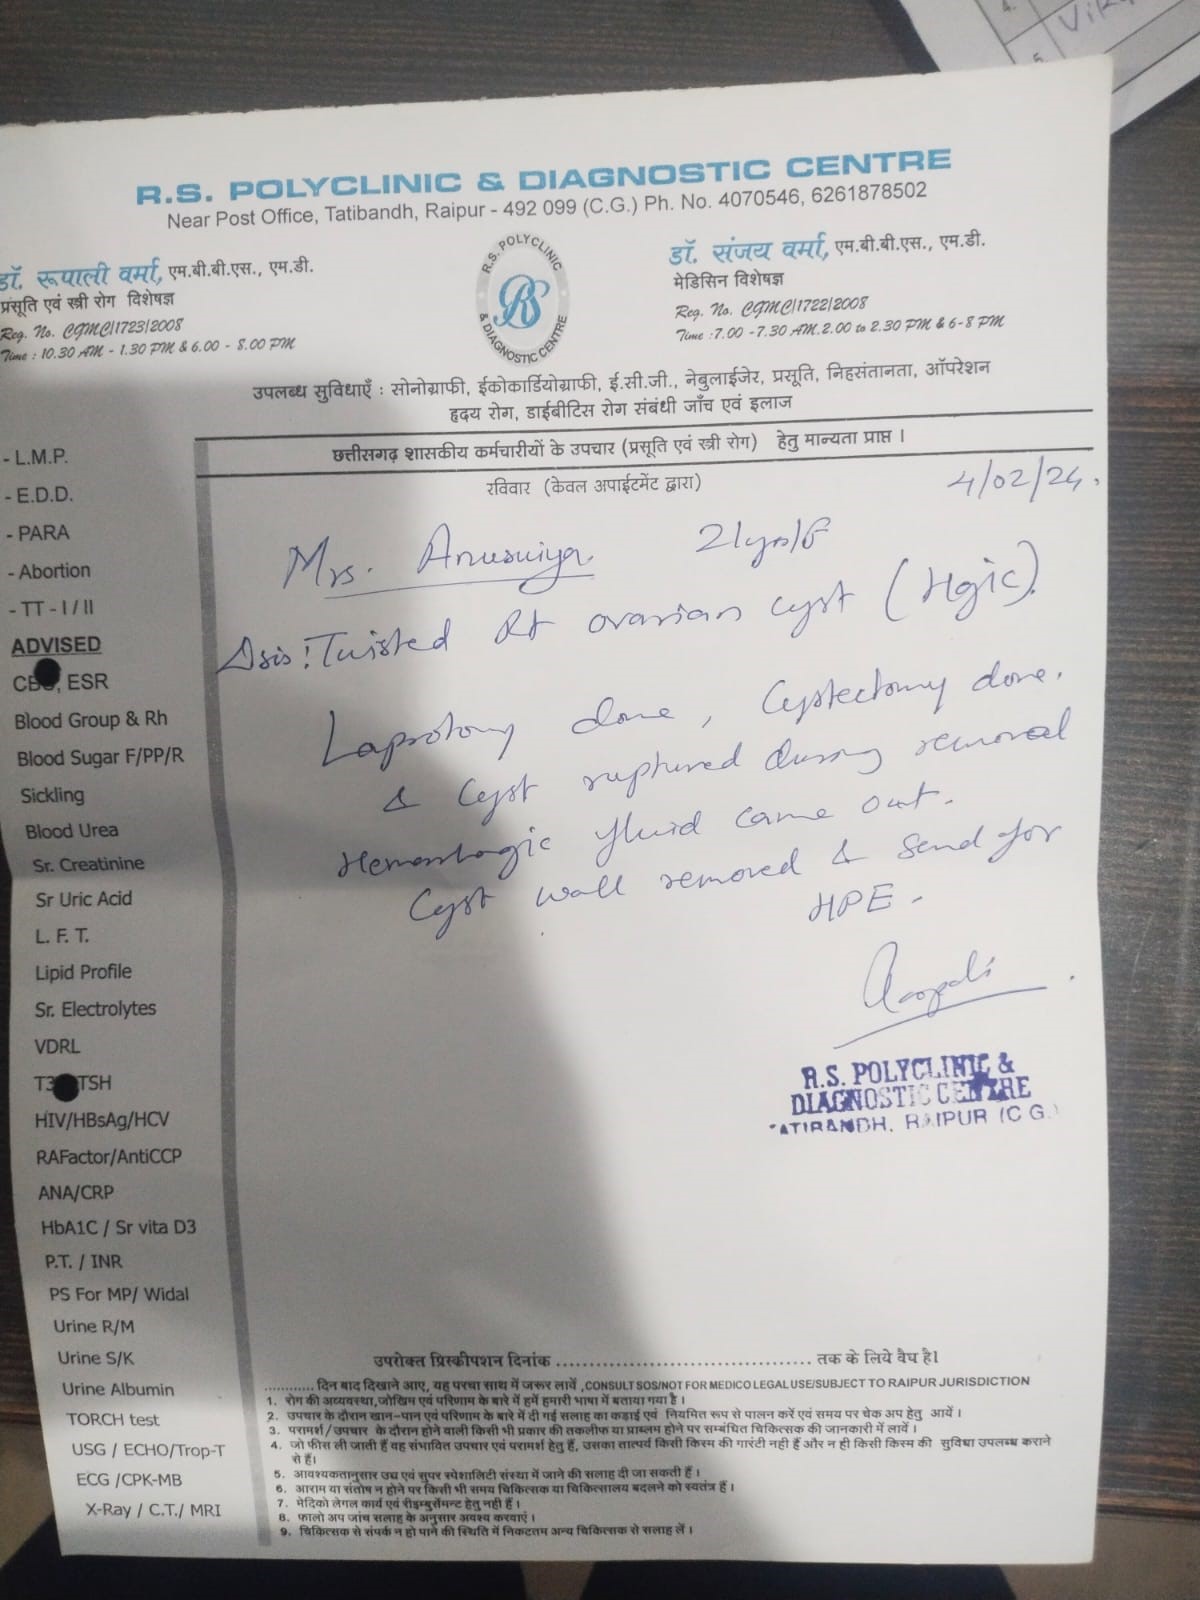 R.S. POLYCLINIC & DIAGNOSTIC CENTRE
Near Post Office, Tatibandh, Raipur - 492 099 (C.G.) Ph. No. 4070546, 6261878502
डॉ. रूपाली वर्मा, एम.बी.बी.एस., एम.डी.
प्रसूति एवं स्त्री रोग विशेषज्ञ
Reg. No. CGMC/1723/2008
Time : 10.30 AM - 1.30 PM & 6.00 - 8.00 PM
R.S. POLYCLINIC
RS
& DIAGNOSTIC CENTRE
डॉ. संजय वर्मा, एम.बी.बी.एस., एम.डी.
मेडिसिन विशेषज्ञ
Reg. No. CGMC/1722/2008
Time :7.00 -7.30 AM.2.00 to 2.30 PM & 6-8 PM
उपलब्ध सुविधाएँ : सोनोग्राफी, ईकोकार्डियोग्राफी, ई.सी.जी., नेबुलाईजेर, प्रसूति, निहसंतानता, ऑपरेशन
हृदय रोग, डाईबीटिस रोग संबंधी जाँच एवं इलाज
छत्तीसगढ़ शासकीय कर्मचारीयों के उपचार (प्रसूति एवं स्त्री रोग) हेतु मान्यता प्राप्त ।
रविवार (केवल अपाईटमेंट द्वारा)
4/02/24.
- L.M.P.
- E.D.D.
- PARA
- Abortion
- TT - I / II
ADVISED
CBC, ESR
Blood Group & Rh
Blood Sugar F/PP/R
Sickling
Blood Urea
Sr. Creatinine
Sr Uric Acid
L. F. T.
Lipid Profile
Sr. Electrolytes
VDRL
T3 TSH
HIV/HBsAg/HCV
RAFactor/AntiCCP
ANA/CRP
HbA1C / Sr vita D3
P.T. / INR
PS For MP/ Widal
Urine R/M
Urine S/K
Urine Albumin
TORCH test
USG / ECHO/Trop-T
ECG /CPK-MB
X-Ray / C.T./ MRI
Mrs. Anusuiya 21yrs/F
Dsis: Twisted Rt ovarian cyst (Hgic).
Laprotomy done, Cystectomy done.
& Cyst ruptured during removal
Hemorrhagic fluid came out.
Cyst wall removed & send for
HPE.
R.S. POLYCLINIC &
DIAGNOSTIC CENTRE
TATIBANDH, RAIPUR (C G.)
उपरोक्त प्रिस्कीपशन दिनांक ........................................ तक के लिये वैघ है।
............ दिन बाद दिखाने आए, यह परचा साथ में जरूर लावें ,CONSULT SOS/NOT FOR MEDICO LEGAL USE/SUBJECT TO RAIPUR JURISDICTION
1. रोग की अव्यवस्था,जोखिम एवं परिणाम के बारे में हमें हमारी भाषा में बताया गया है ।
2. उपचार के दौरान खान-पान एवं परिणाम के बारे में दी गई सलाह का कडाई एवं नियमित रूप से पालन करें एवं समय पर चेक अप हेतु आयें ।
3. परामर्श/उपचार के दौरान होने वाली किसी भी प्रकार की तकलीफ या प्राब्लम होने पर सम्बंधित चिकित्सक की जानकारी में लावें ।
4. जो फीस ली जाती हैं वह संभावित उपचार एवं परामर्श हेतु हैं, उसका तात्पर्य किसी किस्म की गारंटी नही हैं और न ही किसी किस्म की सुविधा उपलब्ध कराने
से हैं।
5. आवश्यकतानुसार उच एवं सुपर स्पेशालिटी संस्था में जाने की सलाह दी जा सकती हैं ।
6. आराम या संतोष न होने पर किसी भी समय चिकित्सक या चिकित्सालय बदलने को स्वतंत्र हैं ।
7. मेदिको लेगल कार्य एवं रीइम्बुर्सेमन्ट हेतु नही हैं ।
8. फालो अप जांच सलाह के अनुसार अवश्य करवाएं ।
9. चिकित्सक से संपर्क न हो पाने की स्थिति में निकटतम अन्य चिकित्सक से सलाह लें ।